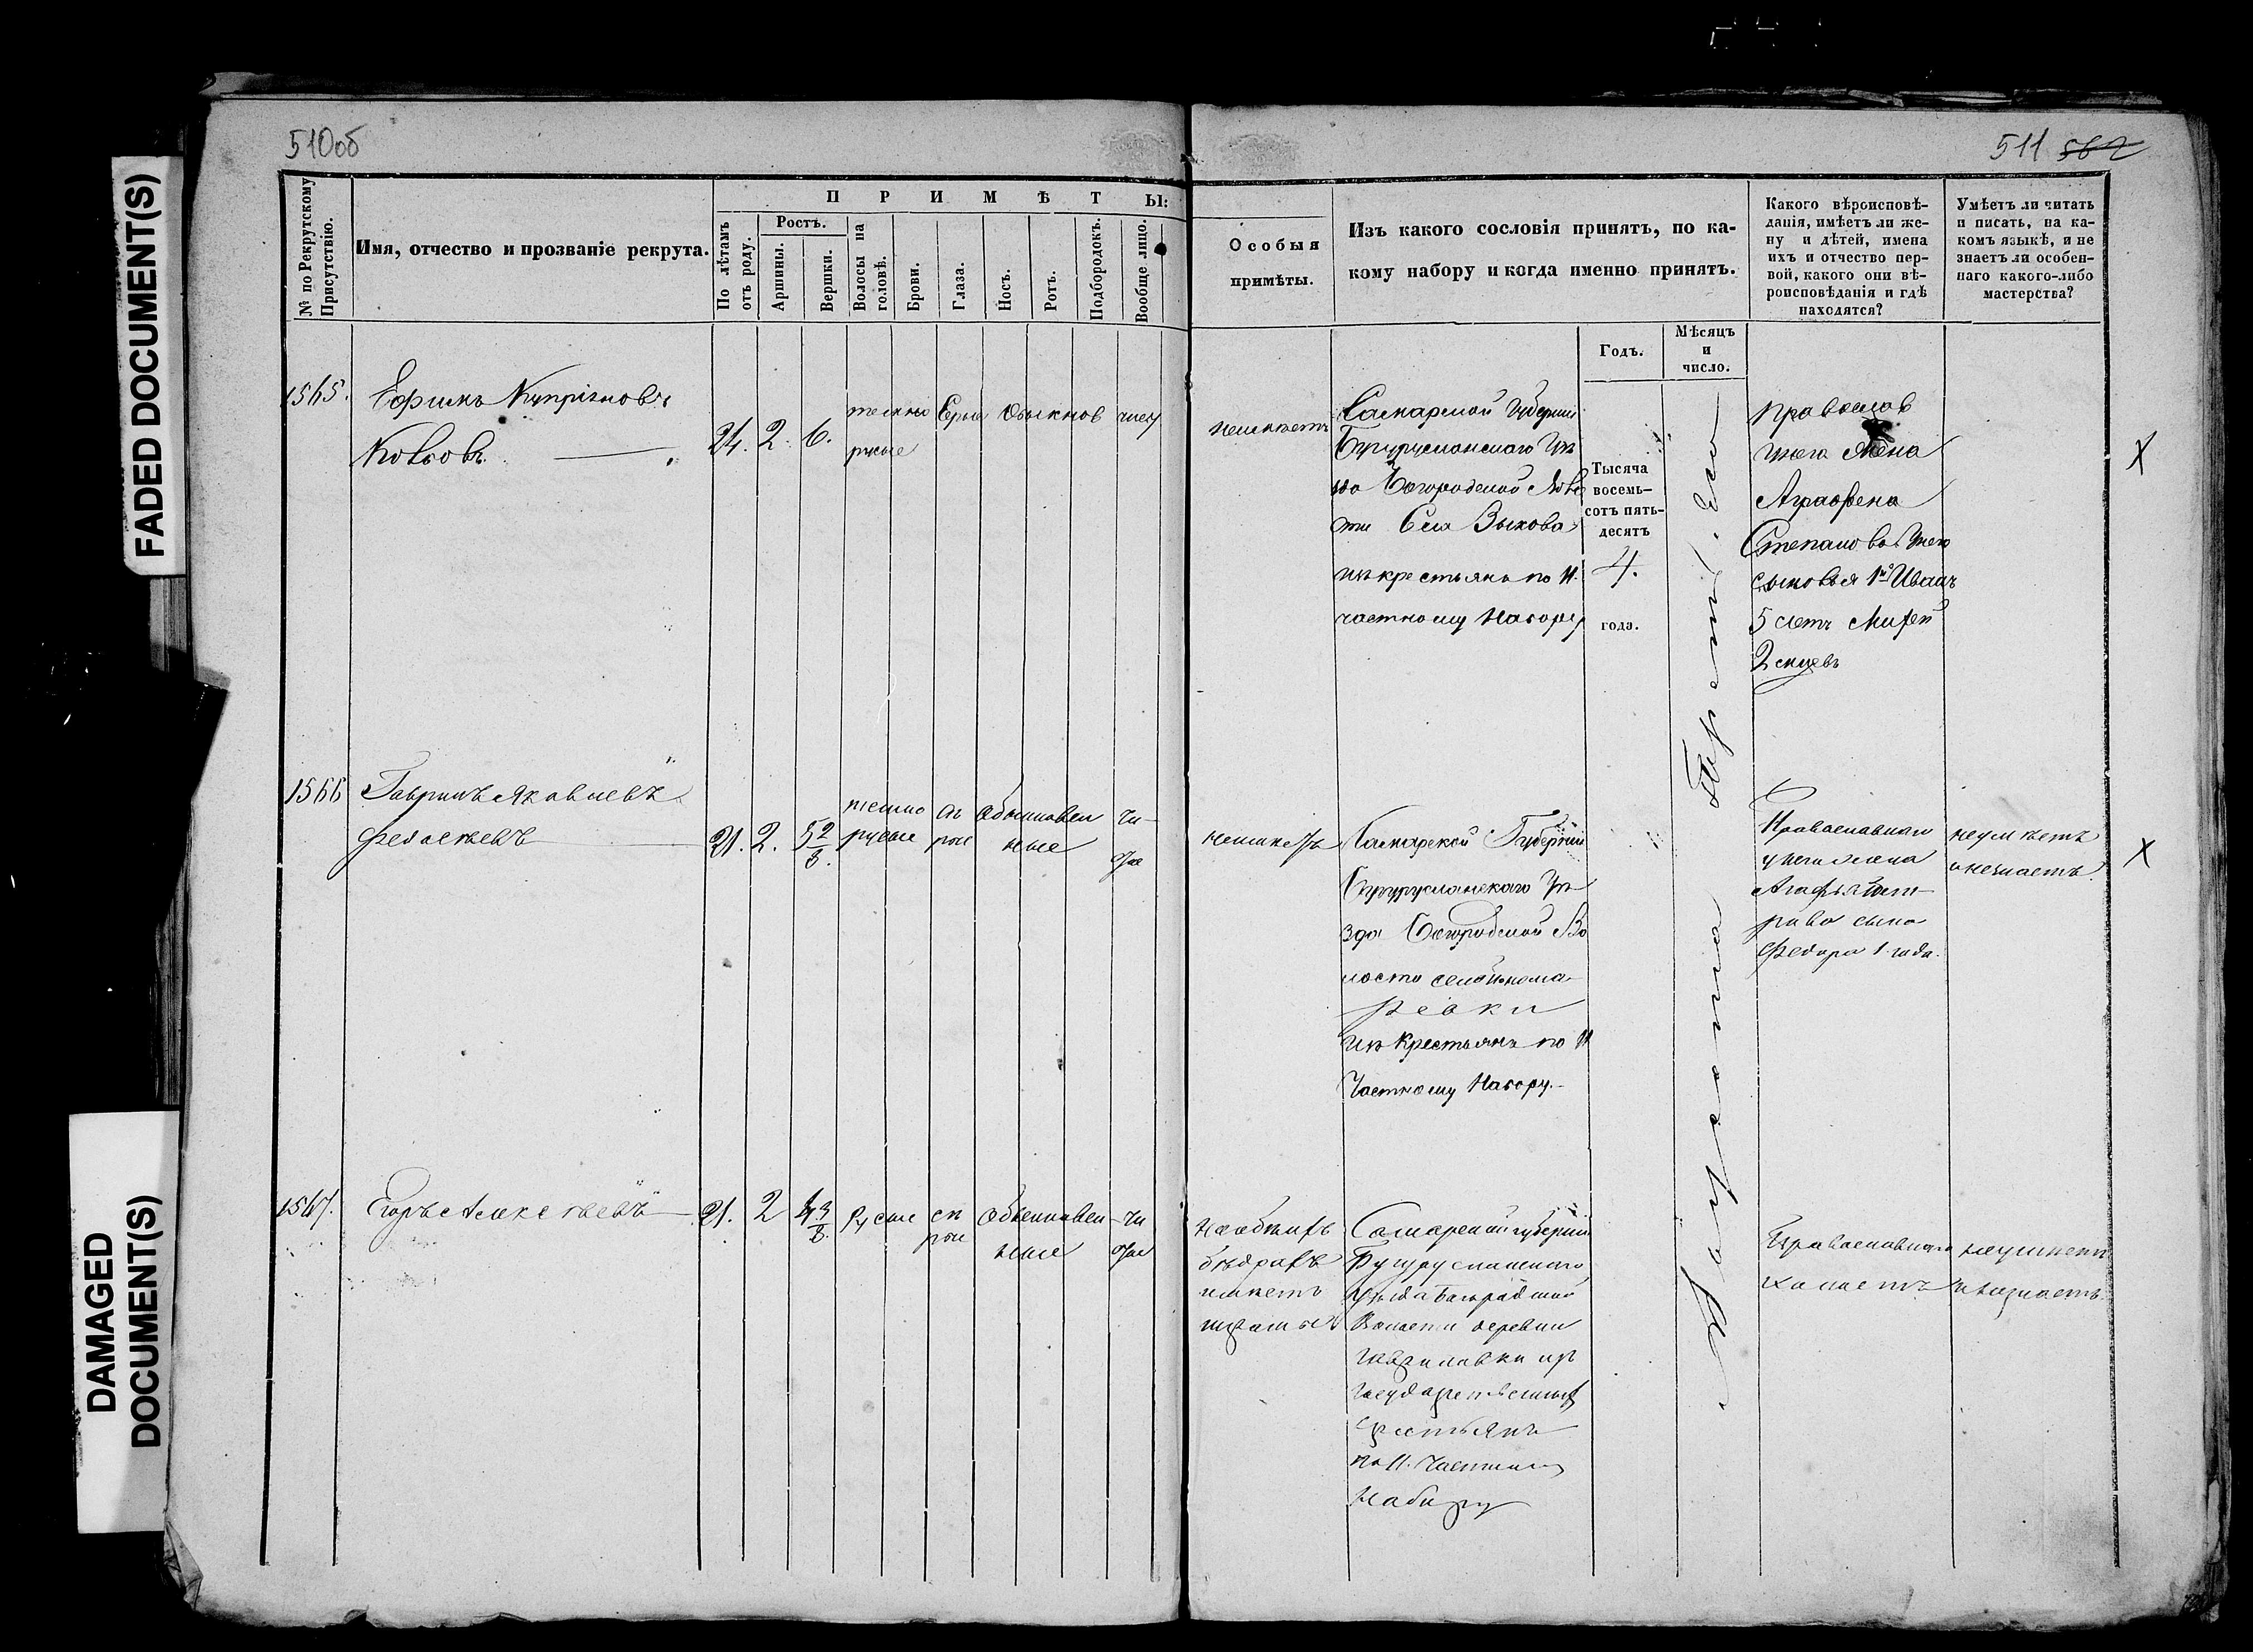 510об
511 562
FADED DOCUMENT(S)
DAMAGED DOCUMENT(S)
№ по Рекрутскому Присутствію.
Имя, отчество и прозваніе рекрута.
ПРИМѢТЫ:
По лѣтамъ отъ роду.
Ростъ.
Аршины.
Вершки.
Волосы на головѣ.
Брови.
Глаза.
Носъ.
Ротъ.
Подбородокъ.
Вообще лицо.
Особыя
примѣты.
Изъ какого сословія принятъ, по ка-
кому набору и когда именно принятъ.
Годъ.
Мѣсяцъ
и
число.
Какого вѣроисповѣ-
данія, имѣетъ ли же-
ну и дѣтей, имена
ихъ и отчество пер-
вой, какого они вѣ-
роисповѣданія и гдѣ
находятся?
Умѣетъ ли читать
и писать, на ка-
комъ языкѣ, и не
знаетъ ли особен-
наго какого-либо
мастерства?
1565.
Ефимъ Купріяновъ
24. 2. 6.
темно
русые
Серые
Обыкнов
неимѣетъ
Самарской Губерніи
Бугурусланскаго Уѣ
зда Богородской Воло
сти Села
изъ крестьянъ по 11.
частному Набору
Тысяча
восемь-
сотъ пять-
десятъ
4.
года.
Августа Третьяго
Православ
унего Жена
Аграфена
Степанова. Унего
сыновья 1й Иванъ
5 летъ
2
X
1566
Гаврилъ Яковлевъ
Федосѣевъ
21. 2. 5 2/8.
темно
русые
сѣ
рые
обыкновен
ные
чи-
стое
неимѣетъ
Самарской Губерніи
Бугурусланскаго Уѣ
зда Богородской Во
лости
изъ Крестьянъ по 11
Частному Набору.
Православнаго
унего жена
Агафья
сынъ
Федоръ 1 года.
неумѣетъ
и незнаетъ.
X
1567.
Егоръ Алексѣевъ
21. 2 4 3/8.
Русые
сѣ
рые
обыкновен
ные
чи
стое
на обѣихъ
бѣдрахъ
имѣетъ
шрамы
Самарской губерніи
Бугурусланскаго
Уѣзда Богородской
Волости деревни
Гавриловки изъ
Государственныхъ
Крестьянъ
по 11. Частному
Набору
Православнаго
холостъ
неумѣетъ
и незнаетъ.